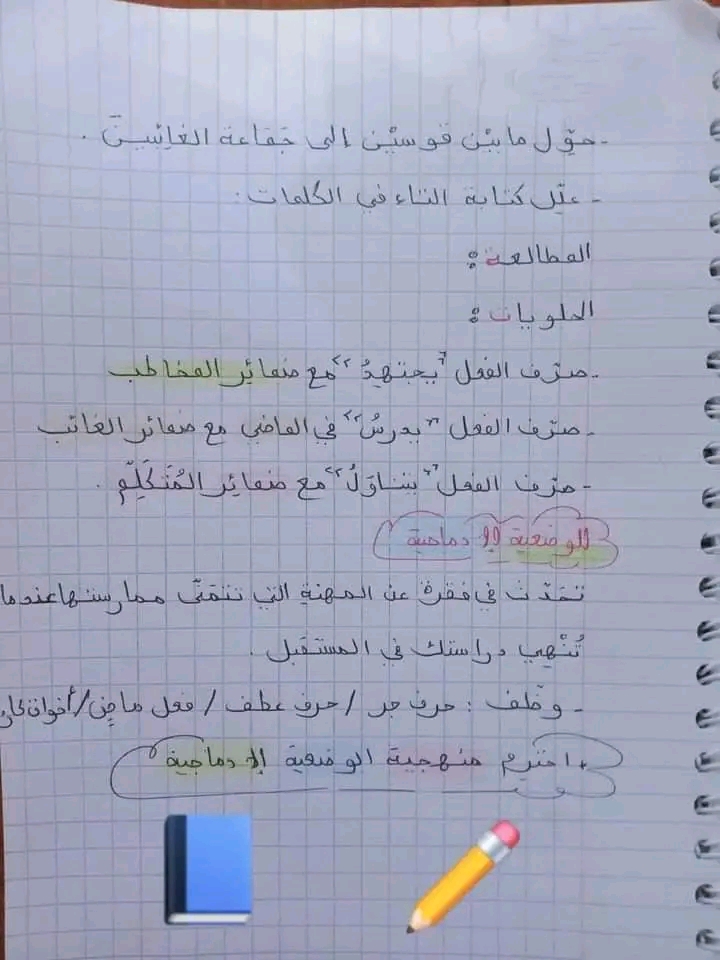 - حوّل ما بيْن قوسيْن إلى جَمَاعة الغائِبينَ .
- علّل كتابة التاء في الكلمات:
المطالعة:
الحلويات:
- صرّف الفعل "يجتهدُ" مع ضمائر المخاطب
- صرّف الفعل "يدرسُ" في الماضي مع ضمائر الغائب
- صرّف الفعل "يتناولُ" مع ضمائر المُتَكَلِّم .
الوضعية الإدماجية
تحدّث في فقرة عن المهنة التي تتمنّى ممارستها عندما
تُنْهِي دراستك في المستقبل .
- وظّف : حرف جر / حرف عطف / فعل ماضٍ / أخوات كان
احترم منهجية الوضعية الإدماجية